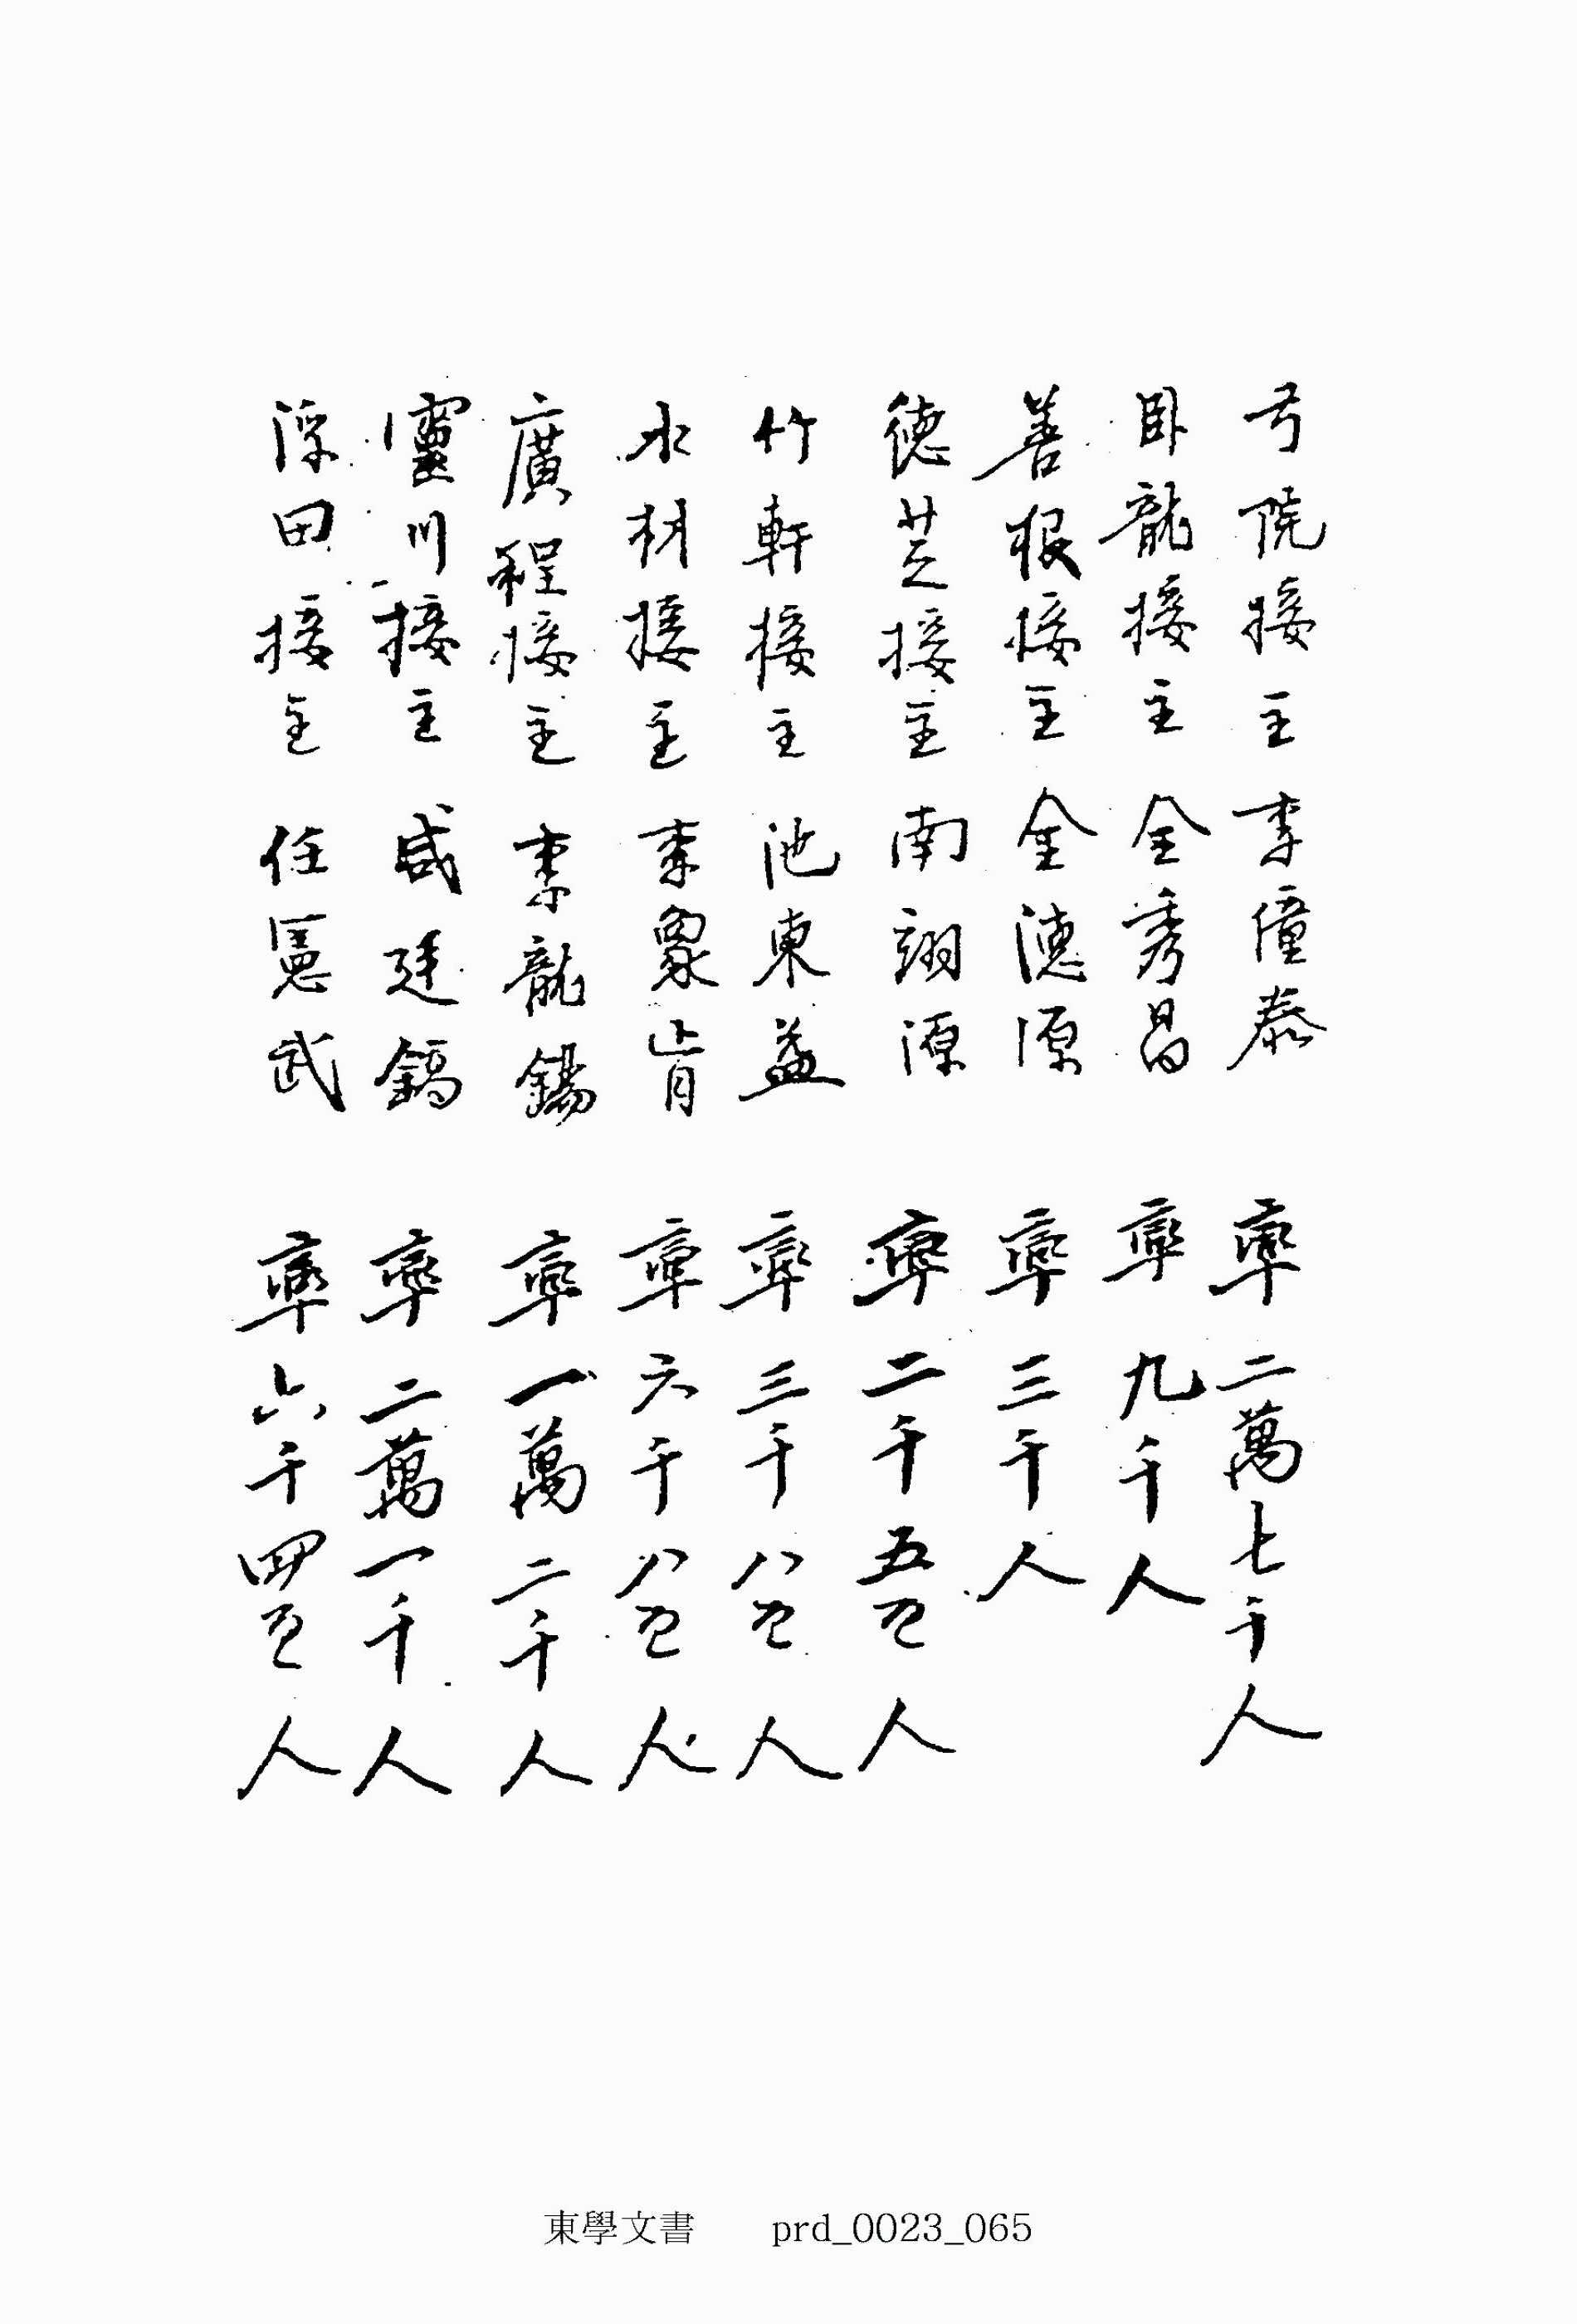 弓院接主 李僮泰 率二萬七千人
臥龍接主 全秀昌 率九千人
善根接主 金漶源 率三千人
德芝接主 南翊源 率二千五百人
竹軒接主 池東益 率三千八百人
水材接主 李象肯 率六千八百人
廣程接主 李龍錫 率一萬二千人
靈川接主 咸廷鎬 率二萬一千人
浮田接主 任憲武 率六千四百人
東學文書 prd_0023_065